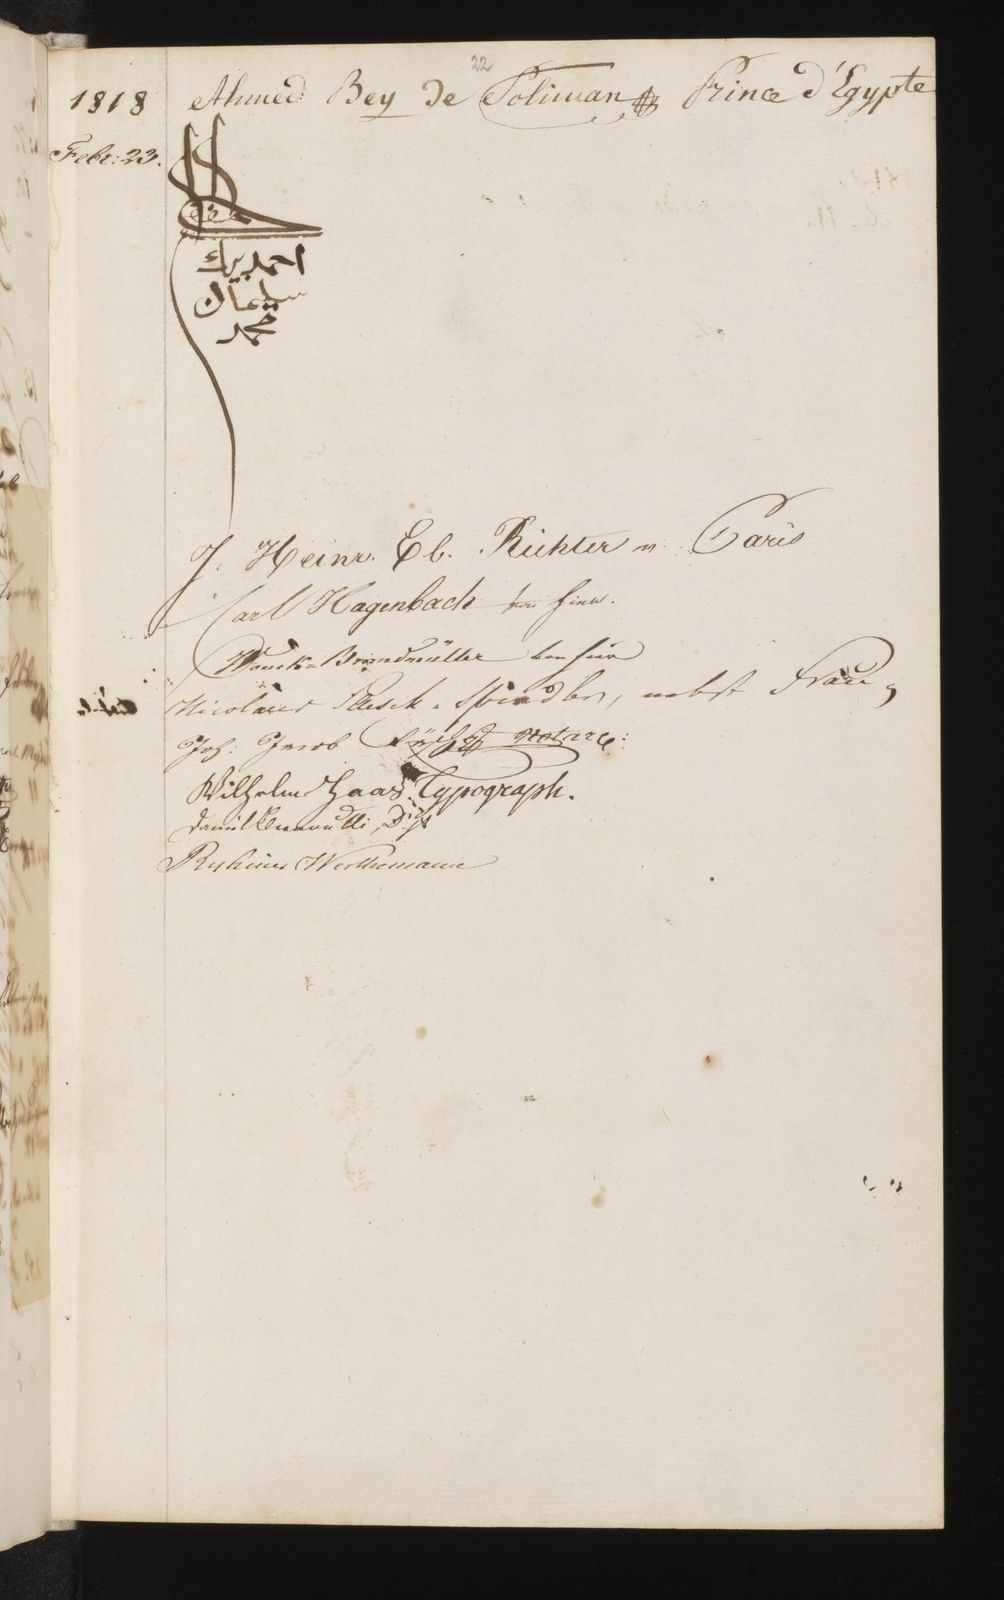 22
1818 Ahmed Bey de Soliman Prince d'Egypte
Febr: 23.
احمد بيك
سليمان
محمد
J. Heinr. Eb. Richter v. Paris
Carl Hagenbach von hier.
Brandmüller von hier
Nicolaus Paesch - Spindler, nebst Frau,
Joh: Jacob Notare:
Wilhelm Haas. Typograph.
Daniel
Ryhiner Werthemann